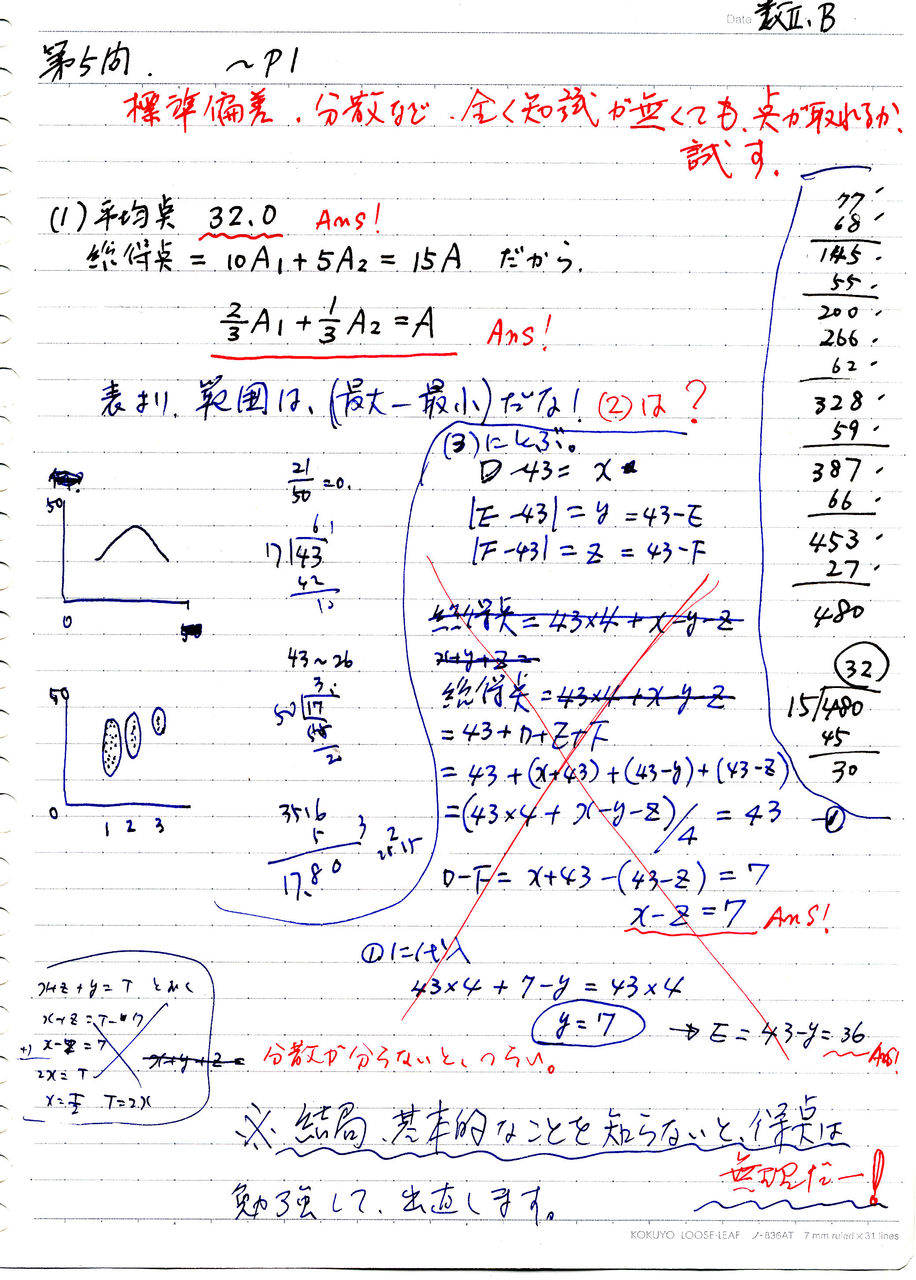 Date 数Ⅱ、B
第5問. ~P1
標準偏差、分散など、全く知識が無くても、点が取れるか、
試す。
(1) 平均点 32.0 Ans!
総得点 = 10A₁ + 5A₂ = 15A だから、
2/3 A₁ + 1/3 A₂ = A Ans!
表より、範囲は、(最大 − 最小)だな! (2)は?
77
68
145
55
200
266
62
328
59
387
66
453
27
480
32
15)480
45
30
50
0
21/50 = 0.
61
17)43
42
1
43~26
3
50)17
2
50
0
1 2 3
3516
5 3 2
17.80
(3)にとぶ。
D − 43 = x
|E − 43| = y = 43 − E
|F − 43| = z = 43 − F
総得点 = 43×4 + x − y − z
x+y+z =
総得点 = 43×4 + x − y − z
= 43 + D + Z + F
= 43 + (x+43) + (43−y) + (43−z)
= (43×4 + x − y − z)/4 = 43 — ①
D − F = x + 43 − (43 − z) = 7
x − z = 7 Ans!
①に代入
43×4 + 7 − y = 43×4
y = 7 → E = 43 − y = 36 Ans!
x+z+y = T とおく
x+z = T − 7
+) x − z = 7
2x = T
x = T/2 T = 2x
x+y+z = 分散が分らないと、つらい。
※ 結局、基本的なことを知らないと、得点は
無理だー!
勉強して、出直します。
KOKUYO LOOSE-LEAF ノ-836AT 7 mm ruled × 31 lines